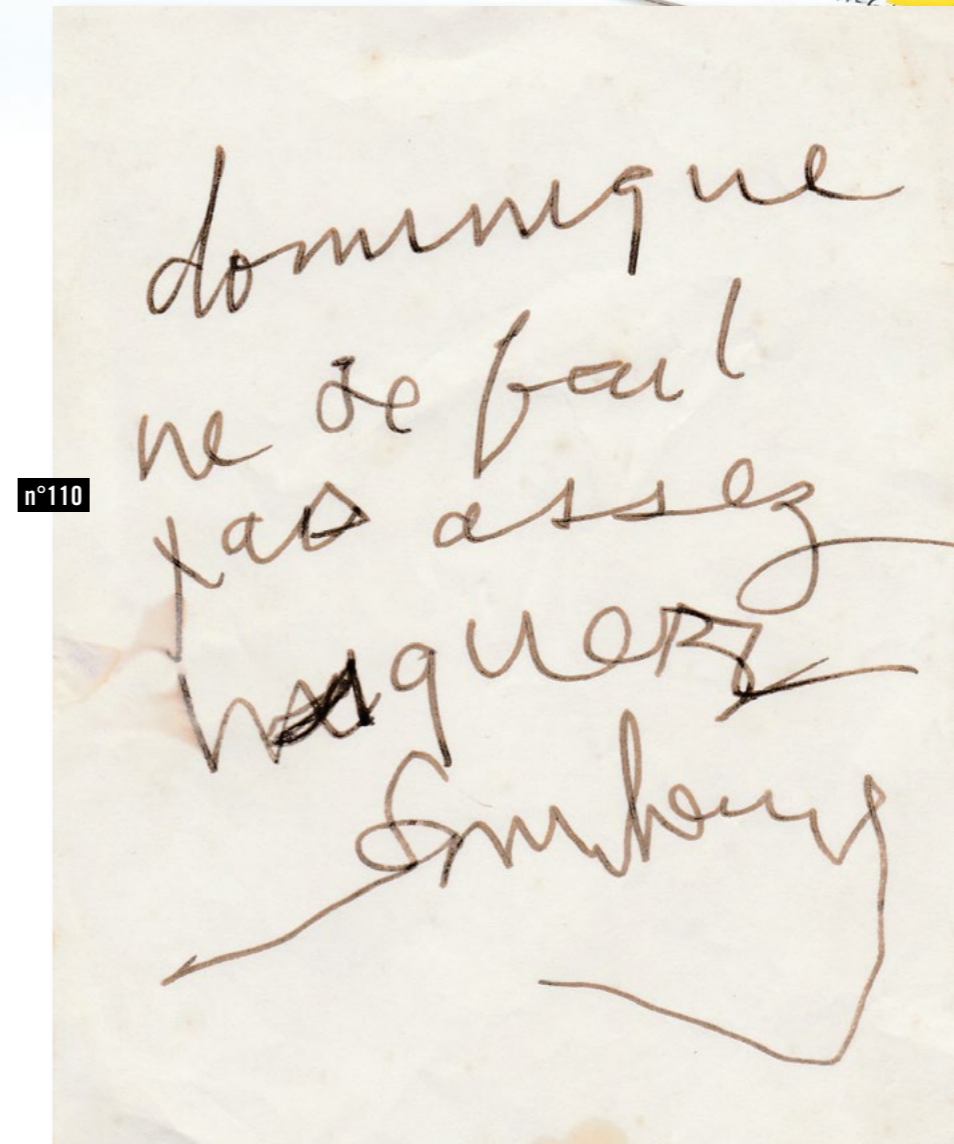 dominique
ne se fait
n°110
pas assez
niquer
Gainsbourg